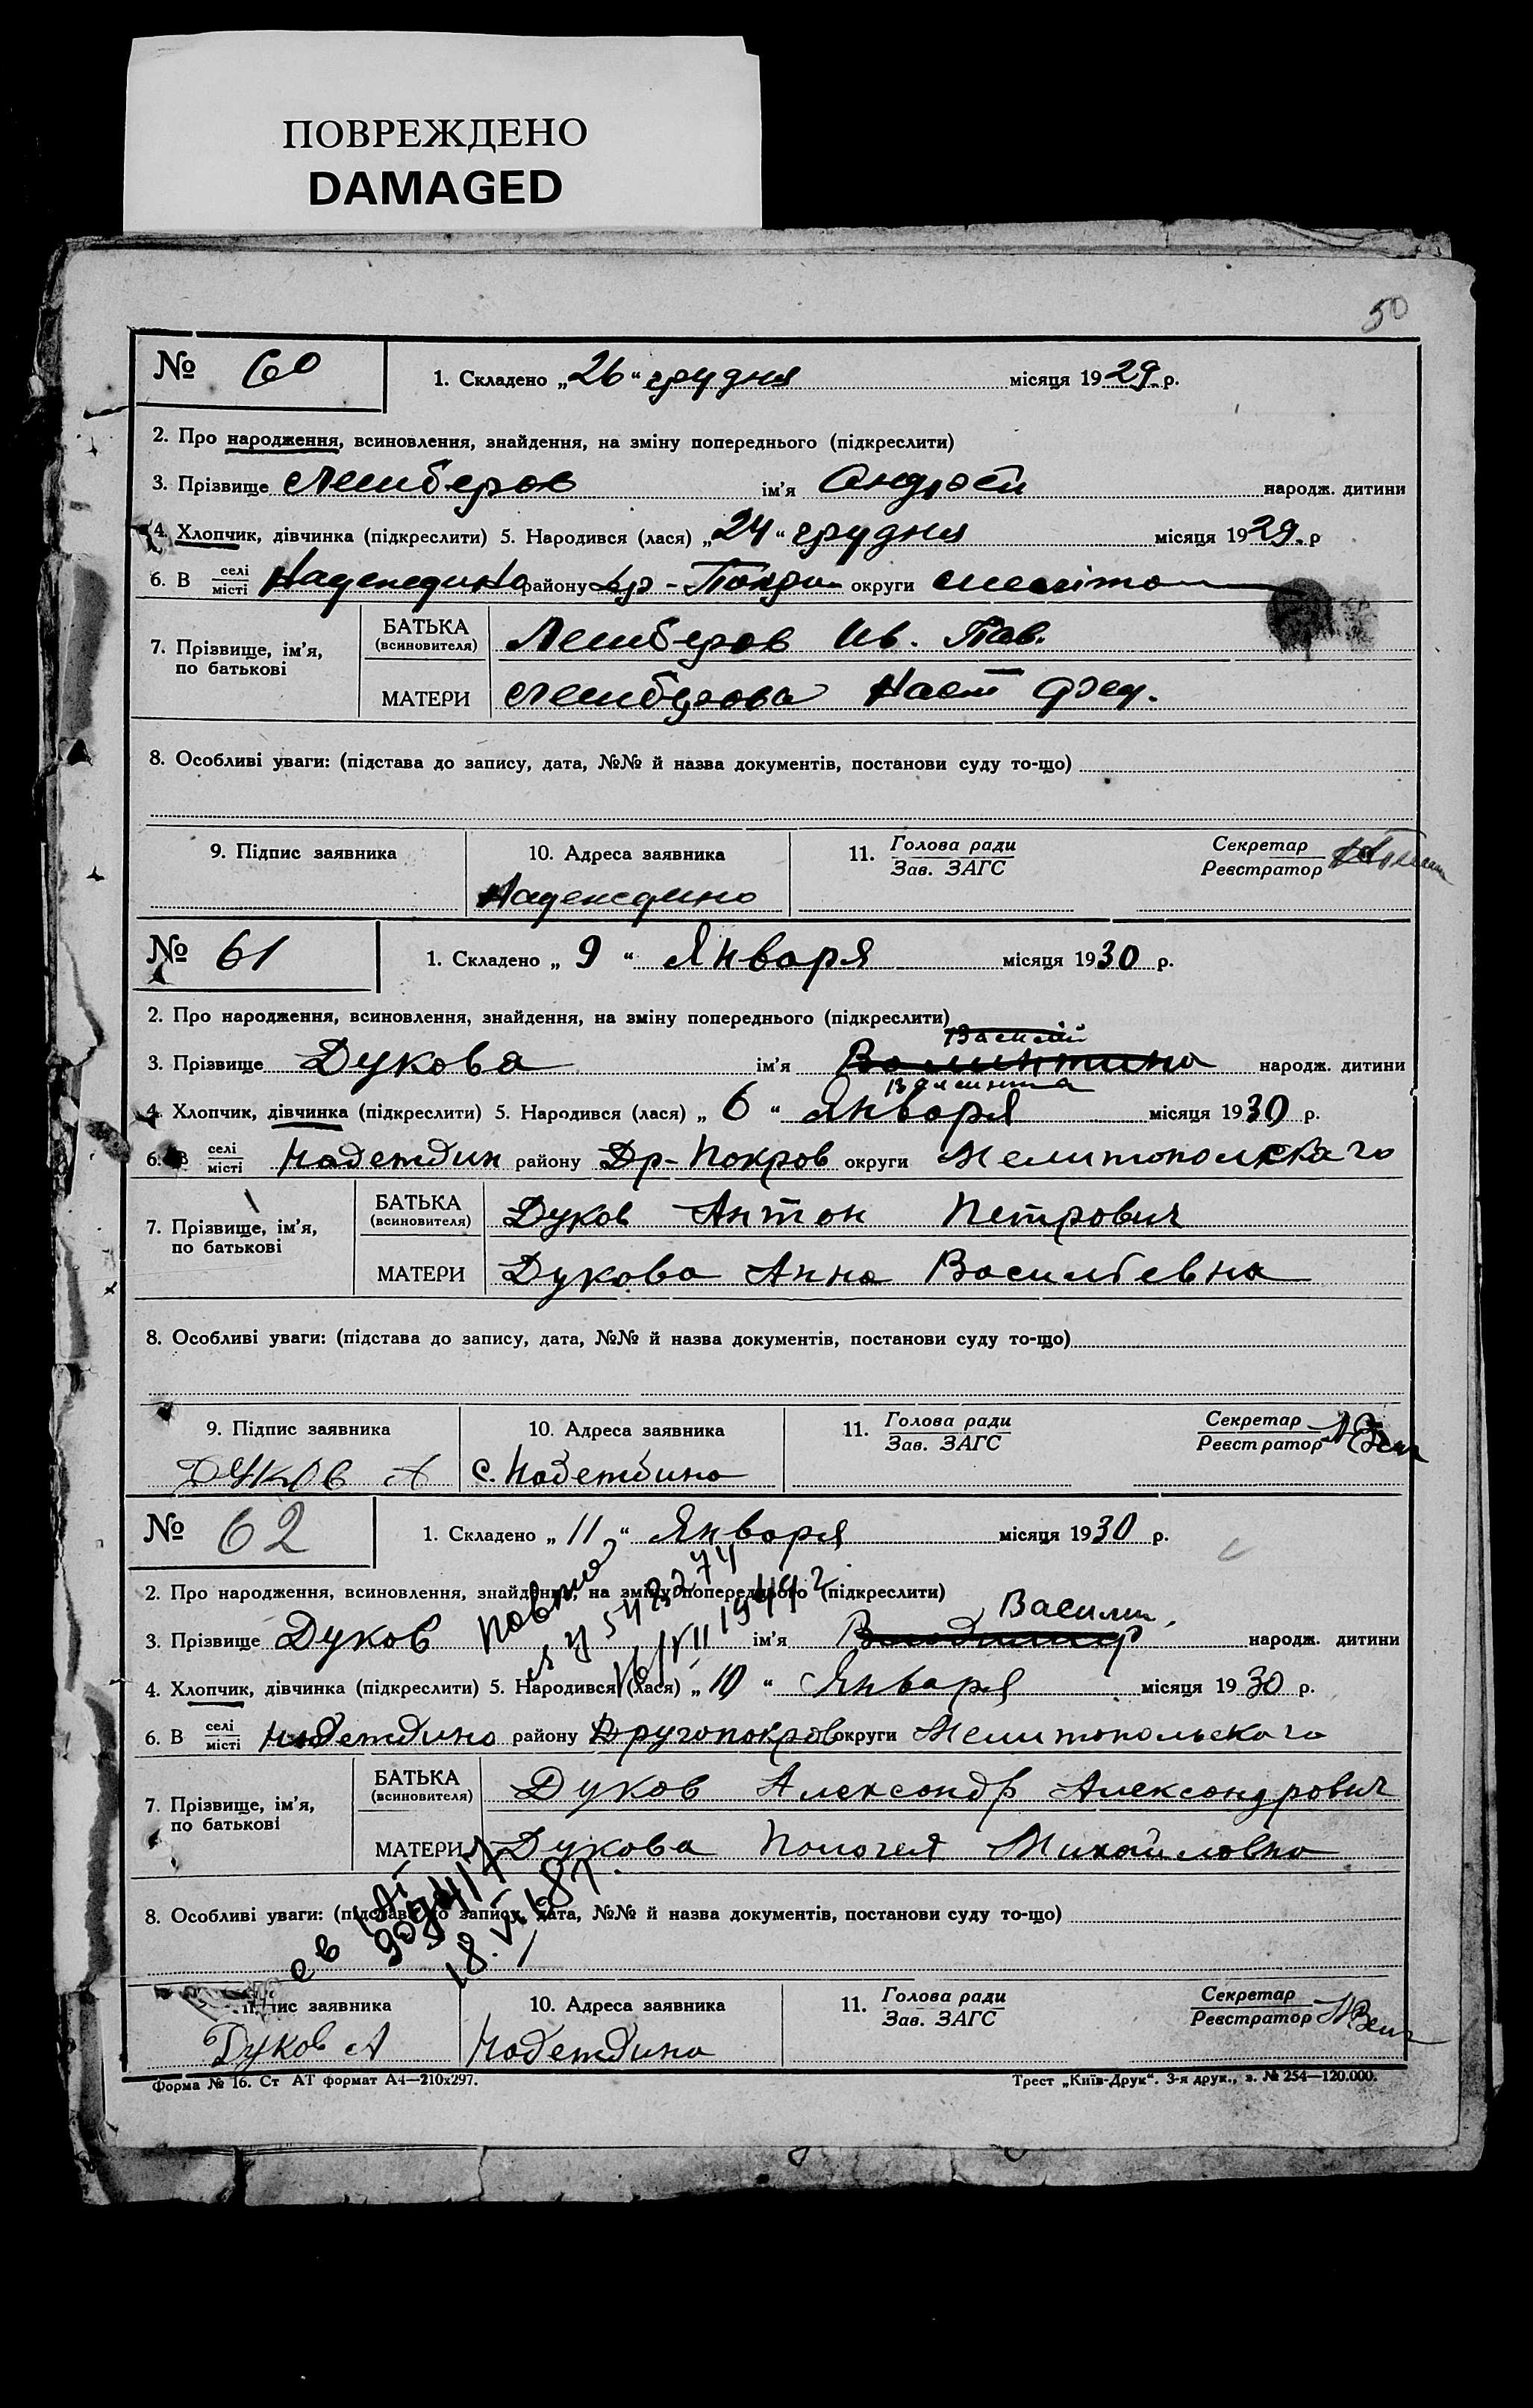 ПОВРЕЖДЕНО
DAMAGED
50
№ 60
1. Складено „26“ грудня місяця 1929 р.
2. Про народження, всиновлення, знайдення, на зміну попереднього (підкреслити)
3. Прізвище Лемберов ім'я Андрей народж. дитини
4. Хлопчик, дівчинка (підкреслити) 5. Народився (лася) „24“ грудня місяця 1929 р
6. В селі/місті Надеждино району Др-Покр округи Меліто
7. Прізвище, ім'я, по батькові
БАТЬКА (всиновителя) Лемберов Ив. Пав.
МАТЕРИ Лемберова Наст Фед.
8. Особливі уваги: (підстава до запису, дата, №№ й назва документів, постанови суду то-що)
9. Підпис заявника
10. Адреса заявника
Надеждино
11. Голова ради
Зав. ЗАГС
Секретар
Реєстратор
№ 61
1. Складено „ 9 “ Января місяця 1930 р.
2. Про народження, всиновлення, знайдення, на зміну попереднього (підкреслити)
Василій
3. Прізвище Дукова ім'я Валинтина народж. дитини
Валинтина
4. Хлопчик, дівчинка (підкреслити) 5. Народився (лася) „ 6 “ Января місяця 1930 р.
6. В селі/місті Надеждин району Др-Покров округи Мелитополскаго
7. Прізвище, ім'я, по батькові
БАТЬКА (всиновителя) Дуков Антон Петрович
МАТЕРИ Дукова Анна Васильевна
8. Особливі уваги: (підстава до запису, дата, №№ й назва документів, постанови суду то-що)
9. Підпис заявника
ДУКОВ А
10. Адреса заявника
с. Надеждино
11. Голова ради
Зав. ЗАГС
Секретар
Реєстратор
№ 62
1. Складено „ 11 “ Января місяця 1930 р.
2. Про народження, всиновлення, знайдення, на зміну попереднього (підкреслити)
Василий
3. Прізвище Дуков ім'я Володимир народж. дитини
4. Хлопчик, дівчинка (підкреслити) 5. Народився (лася) „ 10 “ Января місяця 1930 р.
6. В селі/місті Надеждино району Другопокров округи Мелитопольскаго
7. Прізвище, ім'я, по батькові
БАТЬКА (всиновителя) Дуков Александр Александрович
МАТЕРИ Дукова Пологея Михайловна
8. Особливі уваги: (підстава до запису, дата, №№ й назва документів, постанови суду то-що)
Підпис заявника
Дуков А
10. Адреса заявника
Надеждино
11. Голова ради
Зав. ЗАГС
Секретар
Реєстратор
Форма № 16. Ст АТ формат А4—210х297.
Трест „Київ-Друк“. 3-я друк., з. № 254—120.000.